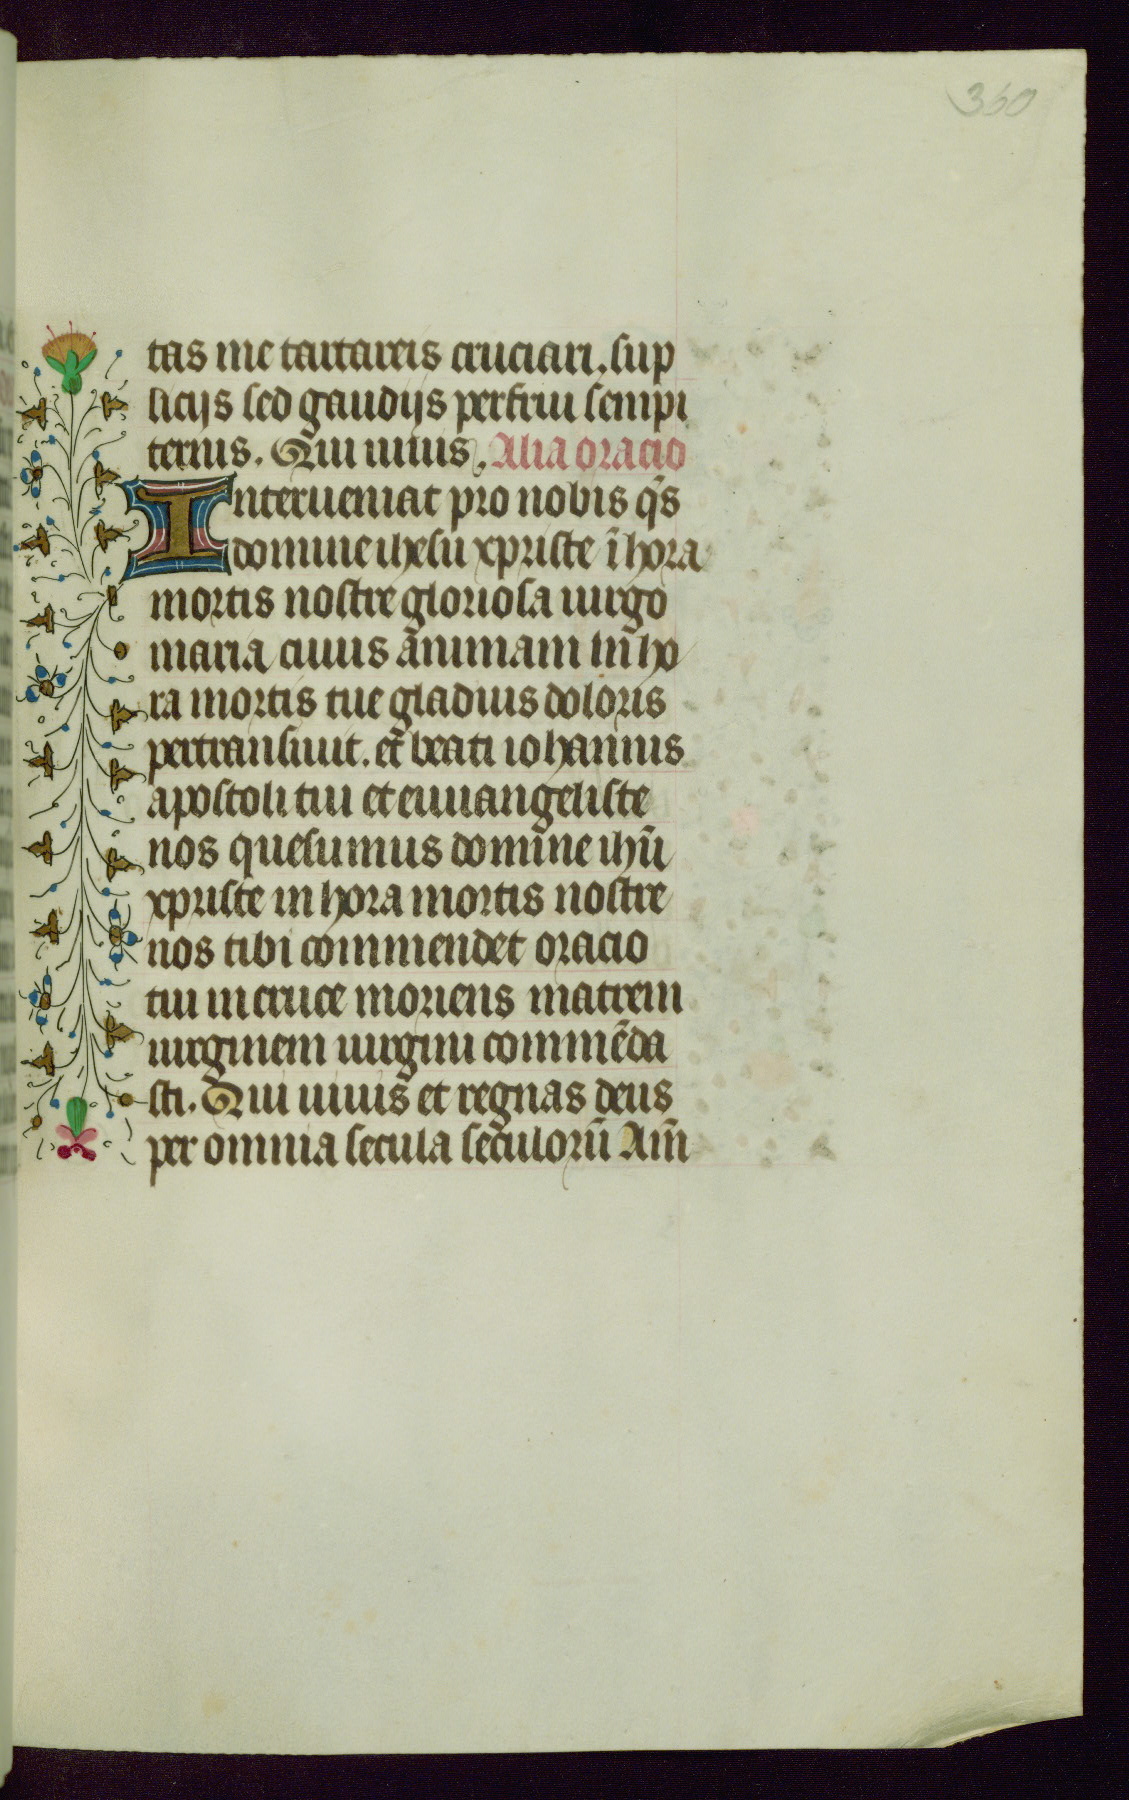 360
tas me tartareis cruciari. sup
licijs sed gaudijs perfrui sempi
ternis. Qui uiuis. Alia oracio
Interueniat pro nobis q̄s
domine ihesu xpriste ī hora
mortis nostre gloriosa uirgo
maria cuius animam in ho
ra mortis tue gladius doloris
pertransiuit. et beati iohannis
apostoli tui et euuangeliste
nos quesumus domine ihū
xpriste in hora mortis nostre
nos tibi commendet oracio
tui in cruce moriens matrem
uirginem uirgini commēda
sti. Qui uiuis et regnas deus
per omnia secula seculorū Am̄